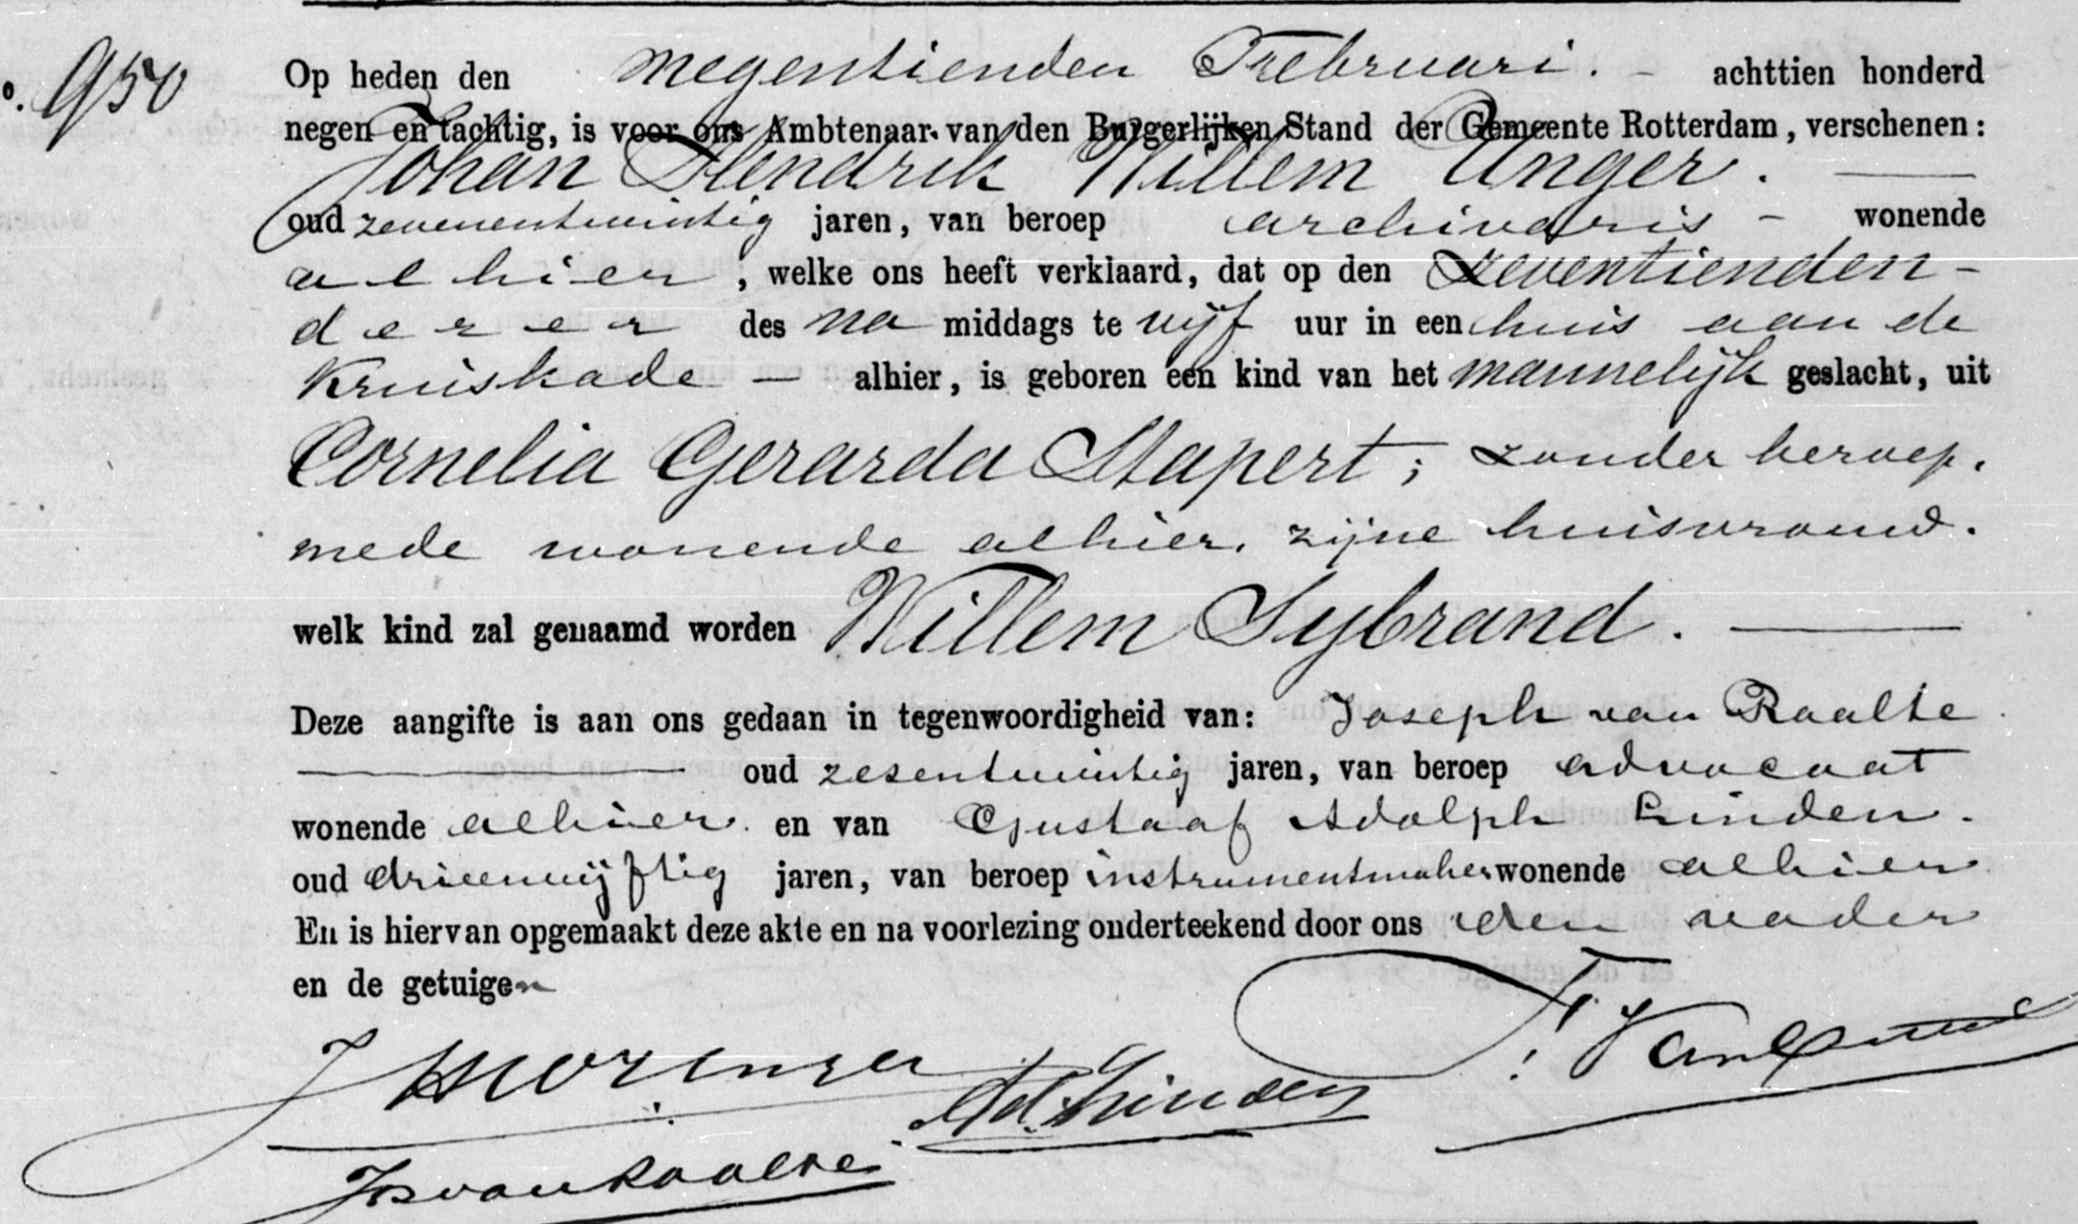 o. 950
Op heden den negentienden Februari. - achttien honderd
negen en tachtig, is voor ons Ambtenaar van den Burgerlijken Stand der Gemeente Rotterdam, verschenen:
Johan Hendrik Willem Unger. —
oud zevenentwintig jaren, van beroep archivaris - wonende
alhier, welke ons heeft verklaard, dat op den zeventienden -
dezer des na middags te vijf uur in een huis aan de
Kruiskade — alhier, is geboren een kind van het mannelijk geslacht, uit
Cornelia Gerarda Stapert; zonder beroep.
mede wonende alhier, zijne huisvrouw.
welk kind zal genaamd worden Willem Sybrand. —
Deze aangifte is aan ons gedaan in tegenwoordigheid van: Joseph van Raalte
— oud zesentwintig jaren, van beroep advocaat
wonende alhier. en van Gustaaf Adolph Linden.
oud drieenvijftig jaren, van beroep instrumentmaker wonende alhier
En is hiervan opgemaakt deze akte en na voorlezing onderteekend door ons den vader
en de getuigen
JHW Unger
Ad. Linden
Jos van Raalte